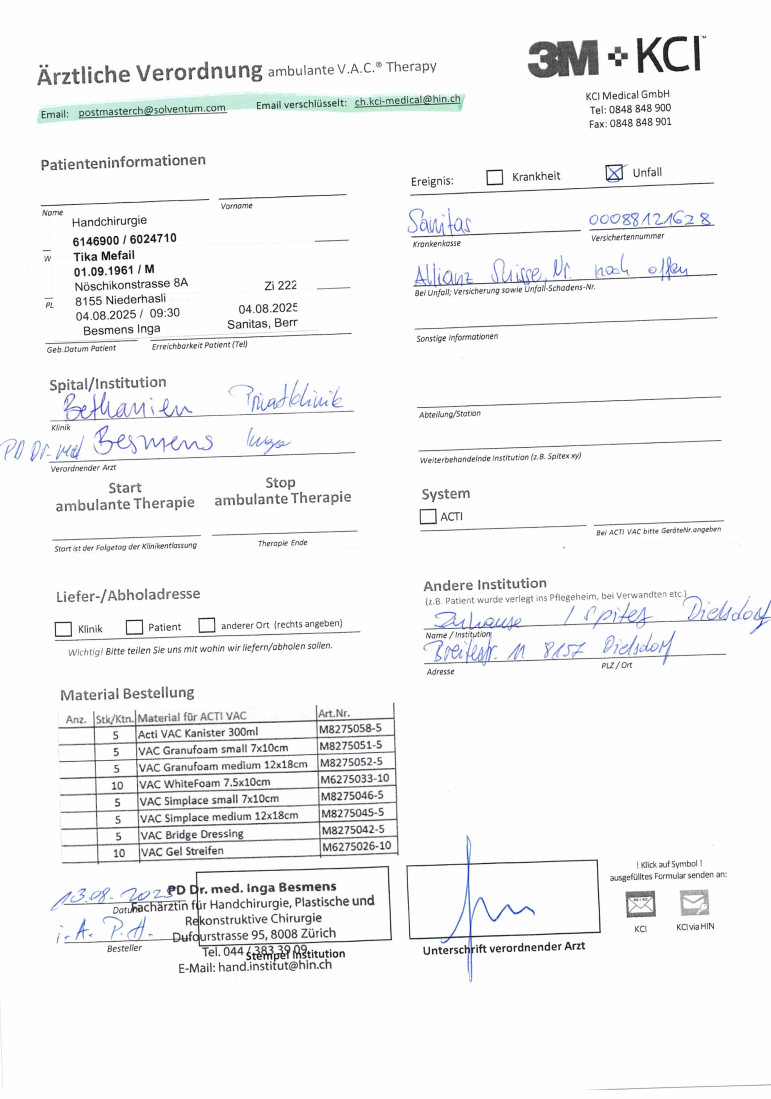 Ärztliche Verordnung ambulante V.A.C.® Therapy
Email: postmasterch@solventum.com Email verschlüsselt: ch.kci-medical@hin.ch
3M + KCI™
KCI Medical GmbH
Tel: 0848 848 900
Fax: 0848 848 901
Patienteninformationen
Name Vorname
Handchirurgie
6146900 / 6024710
W
Tika Mefail
01.09.1961 / M
Nöschikonstrasse 8A Zi 222
PL
8155 Niederhasli
04.08.2025 / 09:30 04.08.2025
Besmens Inga Sanitas, Bern
Geb.Datum Patient Erreichbarkeit Patient (Tel)
Ereignis: Krankheit Unfall
Sanitas 00088121628
Krankenkasse Versichertennummer
Allianz Suisse, Nr. noch offen
Bei Unfall; Versicherung sowie Unfall-Schadens-Nr.
Sonstige Informationen
Abteilung/Station
Weiterbehandelnde Institution (z.B. Spitex xy)
Spital/Institution
Bethanien Privatklinik
Klinik
PD Dr. med Besmens Inga
Verordnender Arzt
Start
ambulante Therapie
Stop
ambulante Therapie
Start ist der Folgetag der Klinikentlassung Therapie Ende
System
ACTI
Bei ACTI VAC bitte GeräteNr.angeben
Liefer-/Abholadresse
Klinik Patient anderer Ort (rechts angeben)
Wichtig! Bitte teilen Sie uns mit wohin wir liefern/abholen sollen.
Andere Institution
(z.B. Patient wurde verlegt ins Pflegeheim, bei Verwandten etc.)
Zuhause / Spitex Dielsdorf
Name / Institution
Breitestr. 11 8157 Dielsdorf
Adresse PLZ / Ort
Material Bestellung
Anz. Stk/Ktn. Material für ACTI VAC Art.Nr.
5 Acti VAC Kanister 300ml M8275058-5
5 VAC Granufoam small 7x10cm M8275051-5
5 VAC Granufoam medium 12x18cm M8275052-5
10 VAC WhiteFoam 7.5x10cm M6275033-10
5 VAC Simplace small 7x10cm M8275046-5
5 VAC Simplace medium 12x18cm M8275045-5
5 VAC Bridge Dressing M8275042-5
10 VAC Gel Streifen M6275026-10
13.08.2025
Datum
i.A. P.H.
Besteller
PD Dr. med. Inga Besmens
Fachärztin für Handchirurgie, Plastische und
Rekonstruktive Chirurgie
Dufourstrasse 95, 8008 Zürich
Tel. 044 / 383 39 09
Stempel Institution
E-Mail: hand.institut@hin.ch
Unterschrift verordnender Arzt
! Klick auf Symbol !
ausgefülltes Formular senden an:
KCI KCI via HIN